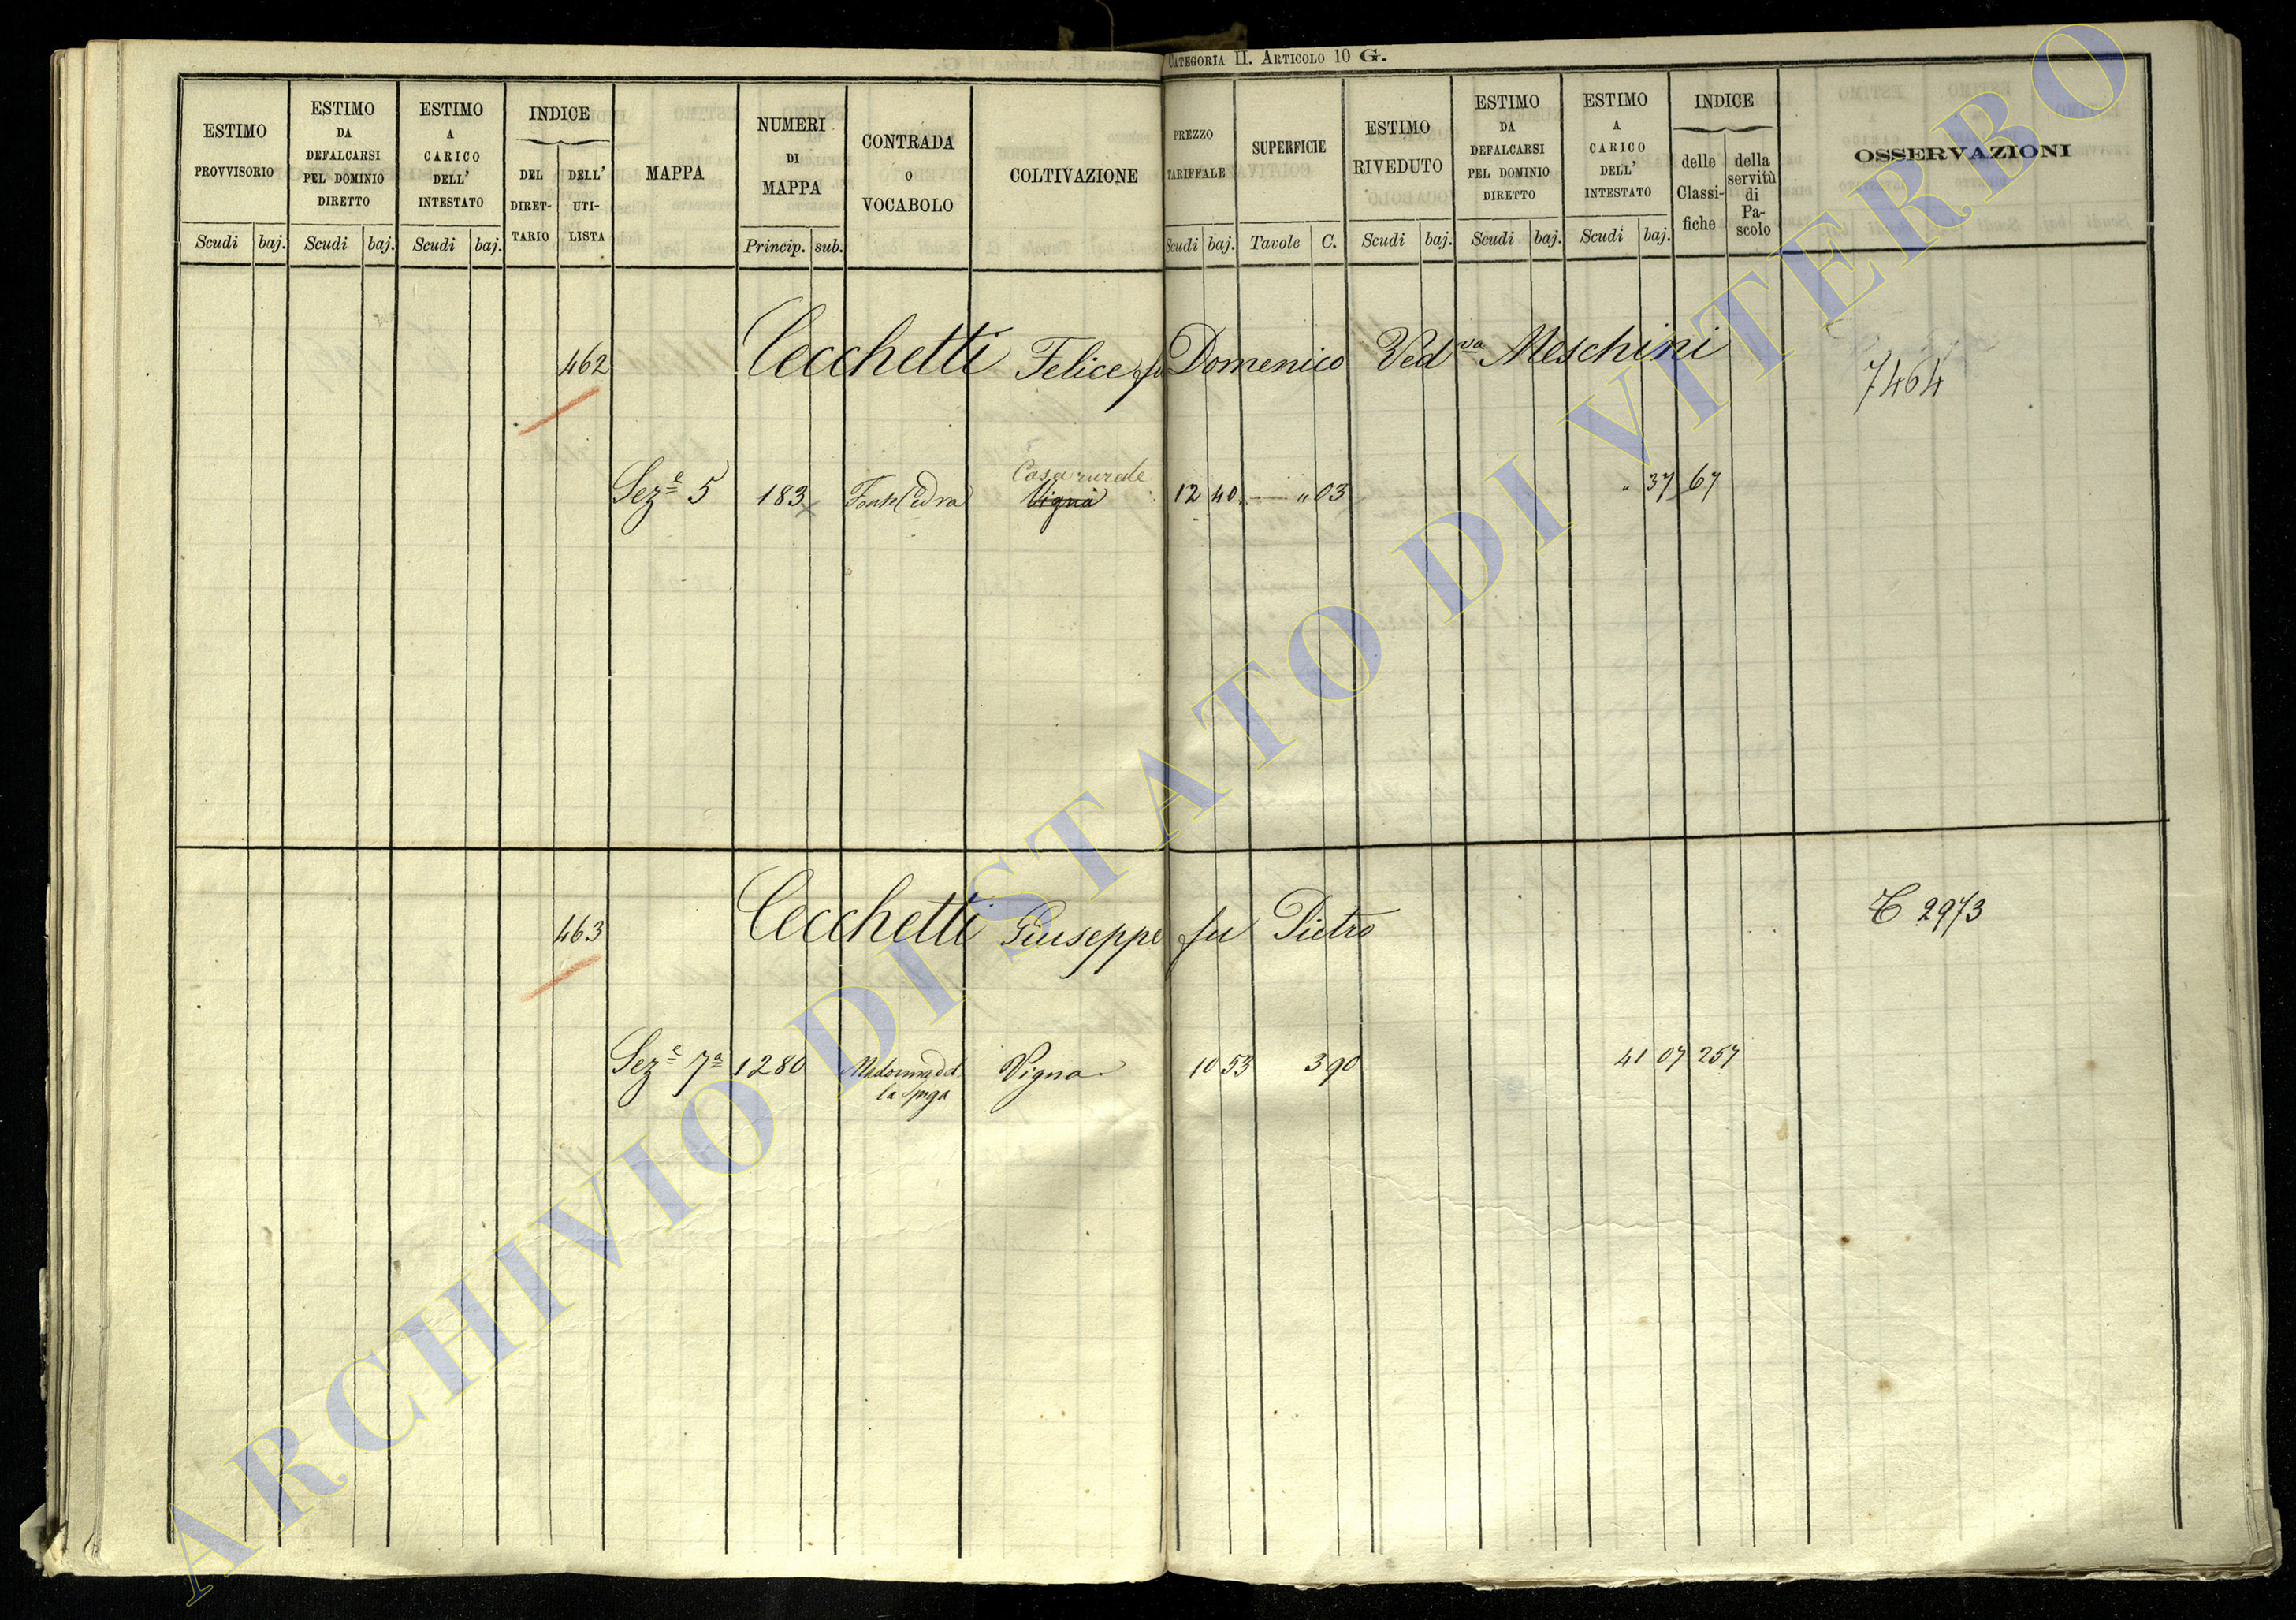 CATEGORIA II. ARTICOLO 10 G.
ESTIMO PROVVISORIO
Scudi baj.
ESTIMO DA DEFALCARSI PEL DOMINIO DIRETTO
Scudi baj.
ESTIMO A CARICO DELL' INTESTATO
Scudi baj.
INDICE
DEL DIRET-TARIO
DELL' UTI-LISTA
MAPPA
NUMERI DI MAPPA
Princip. sub.
CONTRADA O VOCABOLO
COLTIVAZIONE
PREZZO TARIFFALE
Scudi baj.
SUPERFICIE
Tavole C.
ESTIMO RIVEDUTO
Scudi baj.
ESTIMO DA DEFALCARSI PEL DOMINIO DIRETTO
Scudi baj.
ESTIMO A CARICO DELL' INTESTATO
Scudi baj.
INDICE
delle Classi-fiche
della servitù di Pa-scolo
OSSERVAZIONI
462 Cecchetti Felice fu Domenico Ved va Meschini 7464
Casa rurale
Sez e 5 183 Vigna 12 40 — " 03 " 37 67
463 Cecchetti Giuseppe fu Pietro 2973
Sez e 7a 1280 Madonna d Vigna 10 53 3 90 41 07 257
la
ARCHIVIO DI STATO DI VITERBO